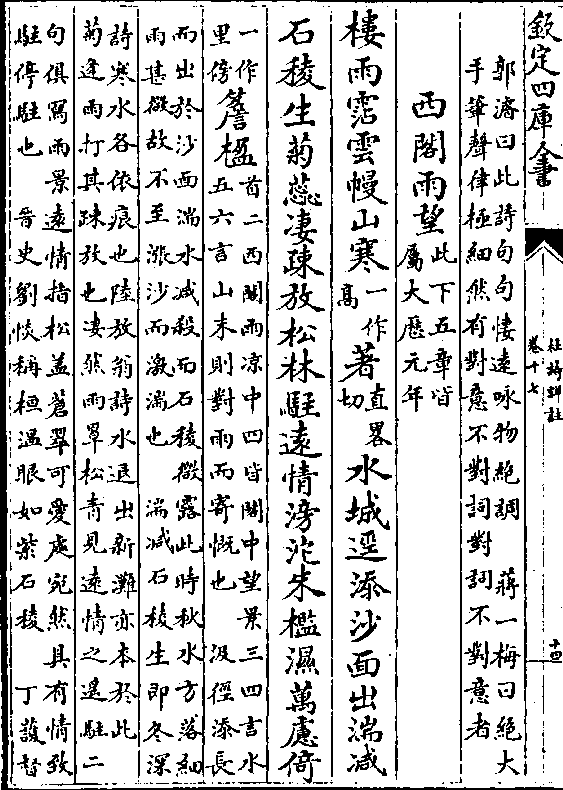 欽定四庫全書
杜詩詳註
卷十七
十四
郭濬曰此詩句句悽遠咏物絶調 蔣一梅曰絶大
手筆聲律極細然有對意不對詞對詞不對意者
西閣雨望此下五章皆
屬大歴元年
樓雨霑雲幔山寒一作
高著直畧
切水城逕添沙面出湍减
石稜生菊蕊凄疎放松林駐遠情滂沱朱檻濕萬慮倚
一作
里傍簷楹首二西閣雨凉中四皆閣中望景三四言水
五六言山末則對雨而寄慨也 汲徑添長
而出於沙面湍水减殺而石稜微露此時秋水方落細
雨甚微故不至漲沙而激湍也 湍减石稜生即冬深
詩寒水各依痕也陸放翁詩水退出新灘亦本於此
菊逢雨打其疎放也凄然雨罩松青見遠情之遥駐二
句俱寫雨景遠情指松盖蒼翠可愛處宛然具有情致
駐停駐也 晉史劉惔稱桓温眼如紫石稜 丁䕶督